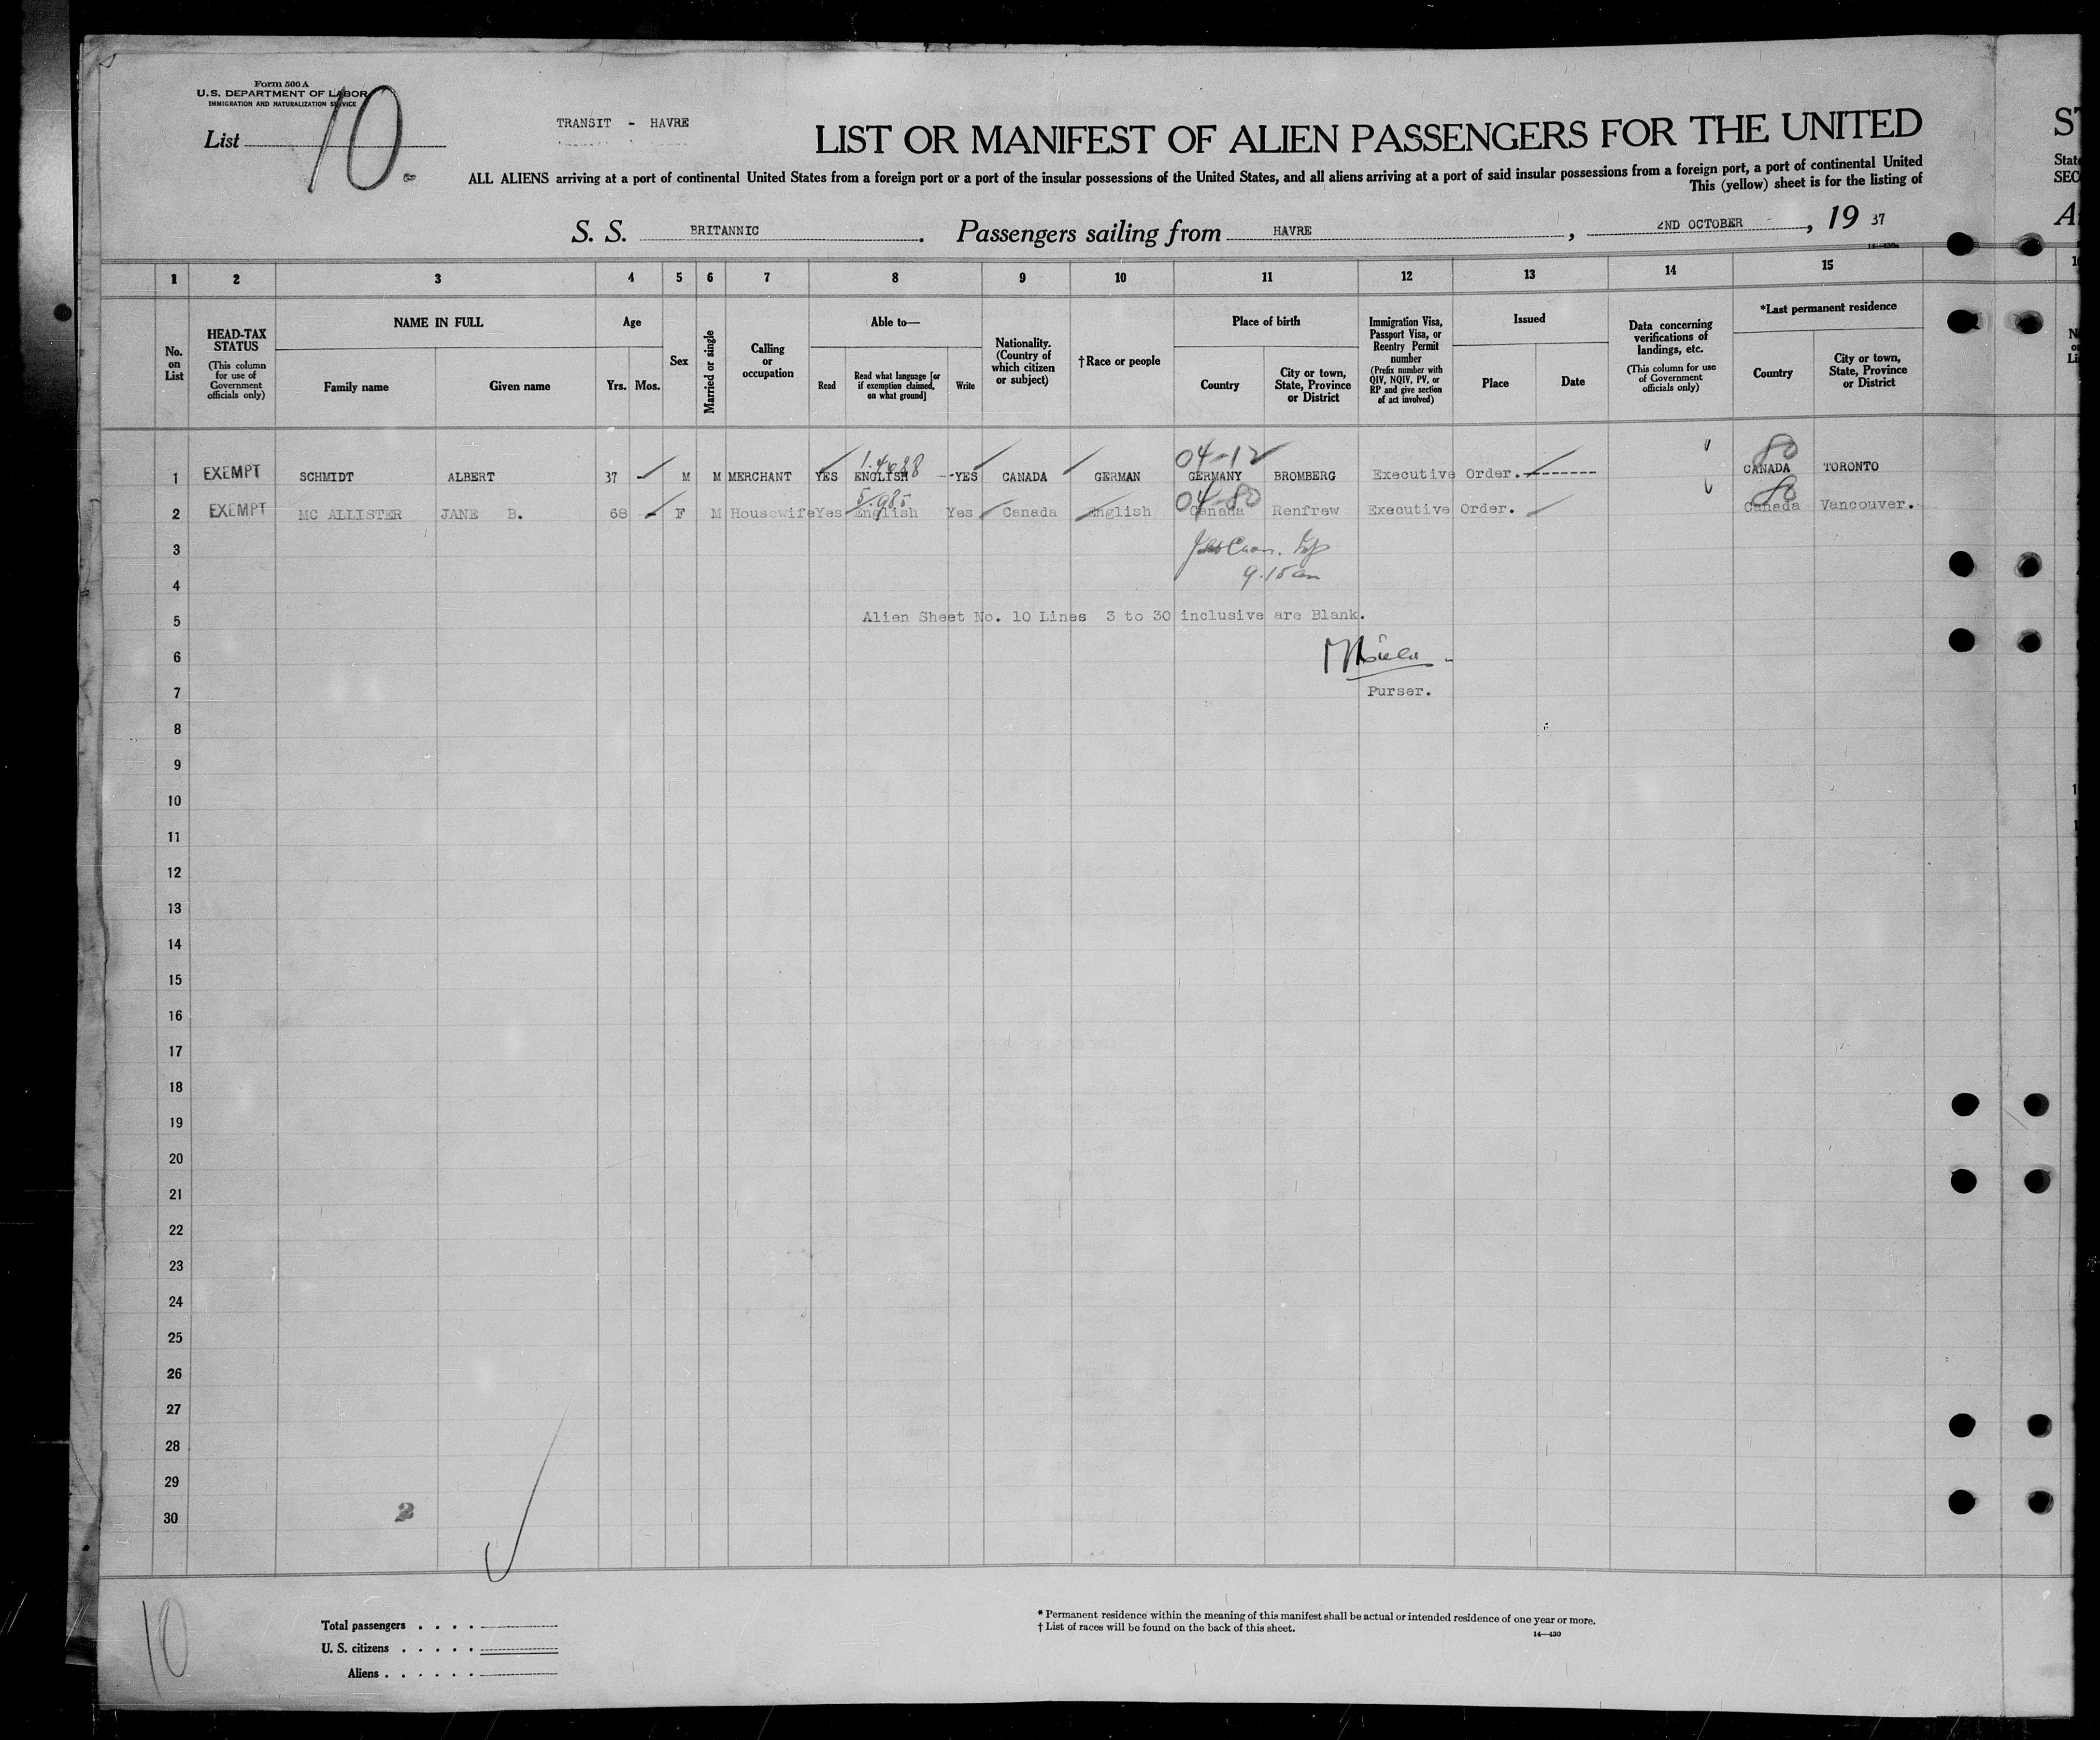 Form 500 A
U.S. DEPARTMENT OF LABOR
IMMIGRATION AND NATURALIZATION SERVICE
List 10.
TRANSIT - HAVRE
LIST OR MANIFEST OF ALIEN PASSENGERS FOR THE UNITED
ALL ALIENS arriving at a port of continental United States from a foreign port or a port of the insular possessions of the United States, and all aliens arriving at a port of said insular possessions from a foreign port, a port of continental United
This (yellow) sheet is for the listing of
S. S. BRITANNIC. Passengers sailing from HAVRE, 2ND OCTOBER, 19 37
1 2 3 4 5 6 7 8 9 10 11 12 13 14 15
No. on List
HEAD-TAX STATUS
(This column for use of Government officials only)
NAME IN FULL
Family name
Given name
Age
Yrs. Mos.
Sex
Married or single
Calling or occupation
Able to—
Read
Read what language [or if exemption claimed, on what ground]
Write
Nationality. (Country of which citizen or subject)
†Race or people
Place of birth
Country
City or town, State, Province or District
Immigration Visa, Passport Visa, or Reentry Permit number
(Prefix number with QIV, NQIV, PV, or RP and give section of act involved)
Issued
Place
Date
Data concerning verifications of landings, etc.
(This column for use of Government officials only)
*Last permanent residence
Country
City or town, State, Province or District
04-12 80
1 EXEMPT SCHMIDT ALBERT 37 M M MERCHANT YES ENGLISH --YES CANADA GERMAN GERMANY BROMBERG Executive Order.-------- CANADA TORONTO
5.985 04-80 80
2 EXEMPT MC ALLISTER JANE B. 68 - F M Housewife Yes English Yes Canada English Canada Renfrew Executive Order. Canada Vancouver.
3
9.15 am
4
5 Alien Sheet No. 10 Lines 3 to 30 inclusive are Blank.
6
7 Purser.
8
9
10
11
12
13
14
15
16
17
18
19
20
21
22
23
24
25
26
27
28
29
30
2
10
Total passengers . . . .
U. S. citizens . . . . .
Aliens . . . . . .
* Permanent residence within the meaning of this manifest shall be actual or intended residence of one year or more.
† List of races will be found on the back of this sheet.
14—430